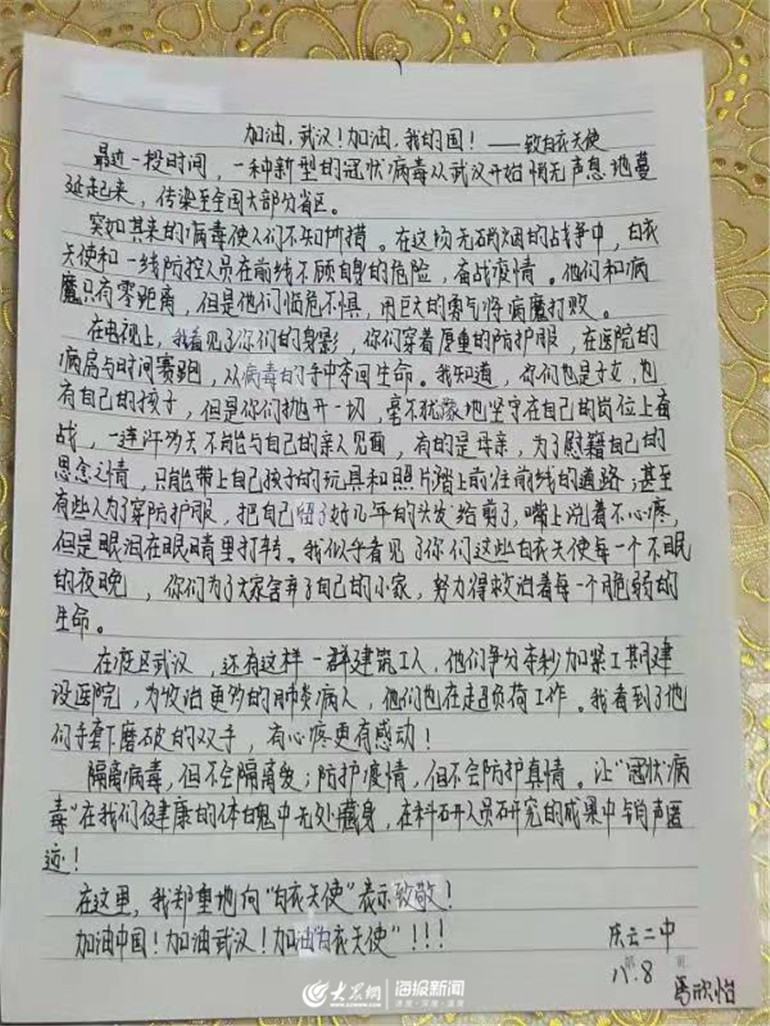 加油,武汉!加油,我的国!——致白衣天使
最近一段时间,一种新型的冠状病毒从武汉开始悄无声息地蔓
延起来,传染至全国大部分省区。
突如其来的病毒使人们不知所措。在这场无硝烟的战争中,白衣
天使和一线防控人员在前线不顾自身的危险,奋战疫情。他们和病
魔只有零距离,但是他们临危不惧,用巨大的勇气将病魔打败。
在电视上,我看见了你们的身影,你们穿着厚重的防护服,在医院的
病房与时间赛跑,从病毒的手中夺回生命。我知道,你们也是子女,也
有自己的孩子,但是你们抛开一切,毫不犹豫地坚守在自己的岗位上奋
战,一连许多天不能与自己的亲人见面,有的是母亲,为了慰藉自己的
思念之情,只能带上自己孩子的玩具和照片踏上前往前线的道路;甚至
有些人为了穿防护服,把自己留了好几年的头发给剪了,嘴上说着不心疼,
但是眼泪在眼睛里打转。我似乎看见了你们这些白衣天使每一个不眠
的夜晚,你们为了大家舍弃了自己的小家,努力得救治着每一个脆弱的
生命。
在疫区武汉,还有这样一群建筑工人,他们争分夺秒加紧工期建
设医院,为收治更多的肺炎病人,他们也在超负荷工作。我看到了他
们手套下磨破的双手,有心疼更有感动!
隔离病毒,但不会隔离爱;防护疫情,但不会防护真情。让“冠状病
毒”在我们健康的体魄中无处藏身,在科研人员研究的成果中销声匿
迹!
在这里,我郑重地向“白衣天使”表示致敬!
加油中国!加油武汉!加油“白衣天使”!!!
庆云二中
第 页
八.8
冯欣怡
大众网 海报新闻
速度·深度·温度